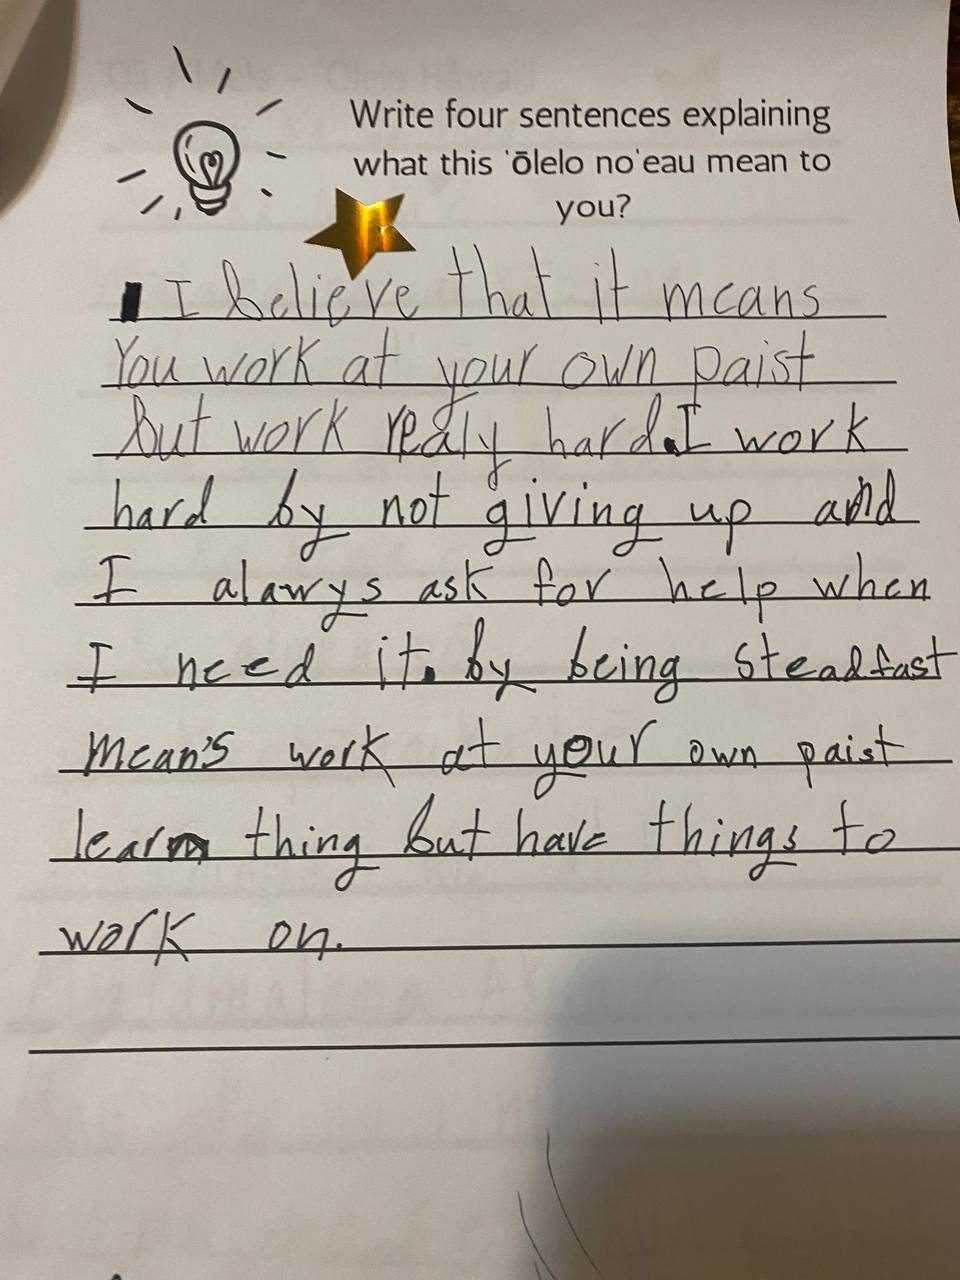 Write four sentences explaining
what this ʻōlelo noʻeau mean to
you?
I believe that it means
You work at your own paist
but work realy hard. I work
hard by not giving up and
I alawys ask for help when
I need it. by being steadfast
mean's work at your own paist
learn thing but have things to
work on.